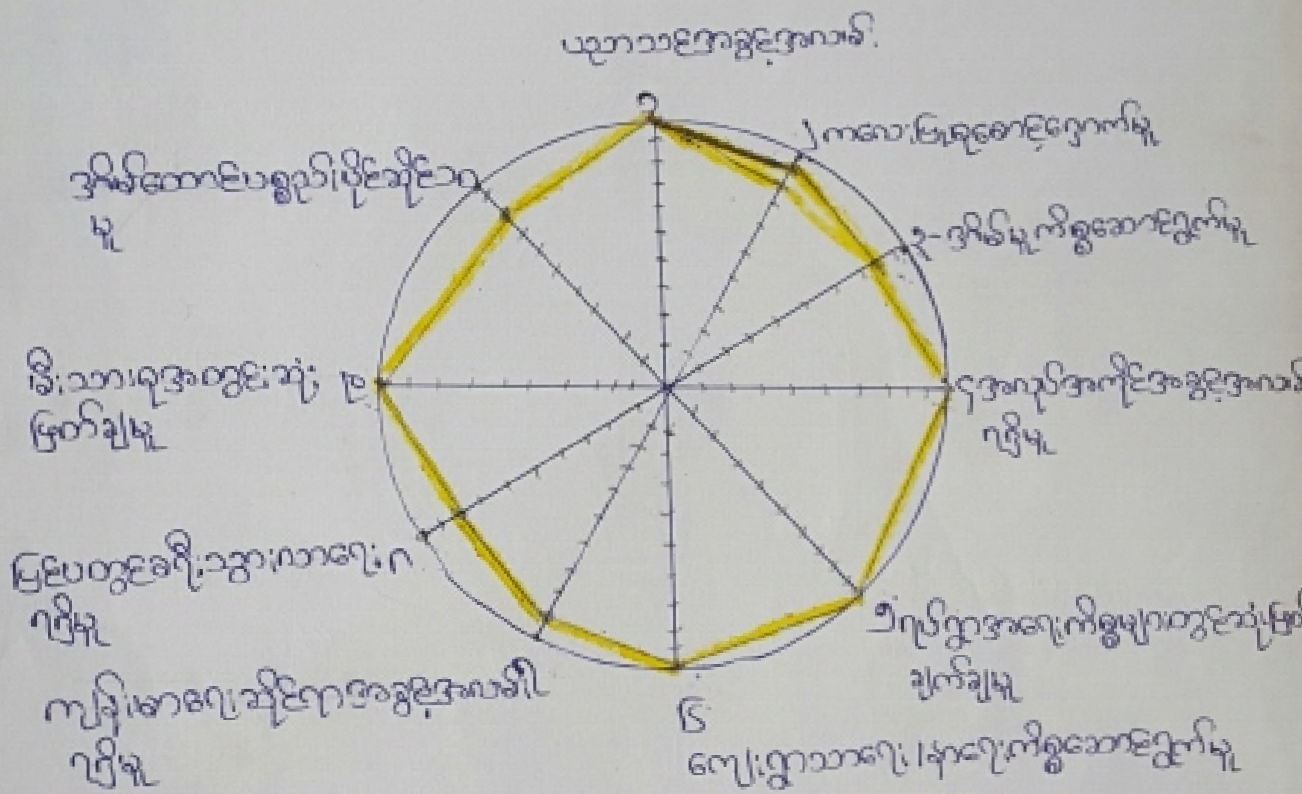 ပညာသင်အခွင့်အလမ်း
၁
၂ ကလေးပြုစုစောင့်ရှောက်မှု
၃-အိမ်မှုကိစ္စဆောင်ရွက်မှု
၄ အလုပ်အကိုင်အခွင့်အလမ်း
ရရှိမှု
၅ ရပ်ရွာအရေးကိစ္စများတွင်ဆုံးဖြတ်
ချက်ချမှု
၆
ကျေးရွာသာရေး/နာရေးကိစ္စဆောင်ရွက်မှု
ကျန်းမာရေးဆိုင်ရာအခွင့်အလမ်း ၇
ရရှိမှု
ပြင်ပတွင်ခရီးသွားလာရေး ၈
ရရှိမှု
မိသားစုအတွင်းဆုံး ၉
ဖြတ်ချမှု
အိမ်ထောင်ပစ္စည်းပိုင်ဆိုင် ၁၀
မှု